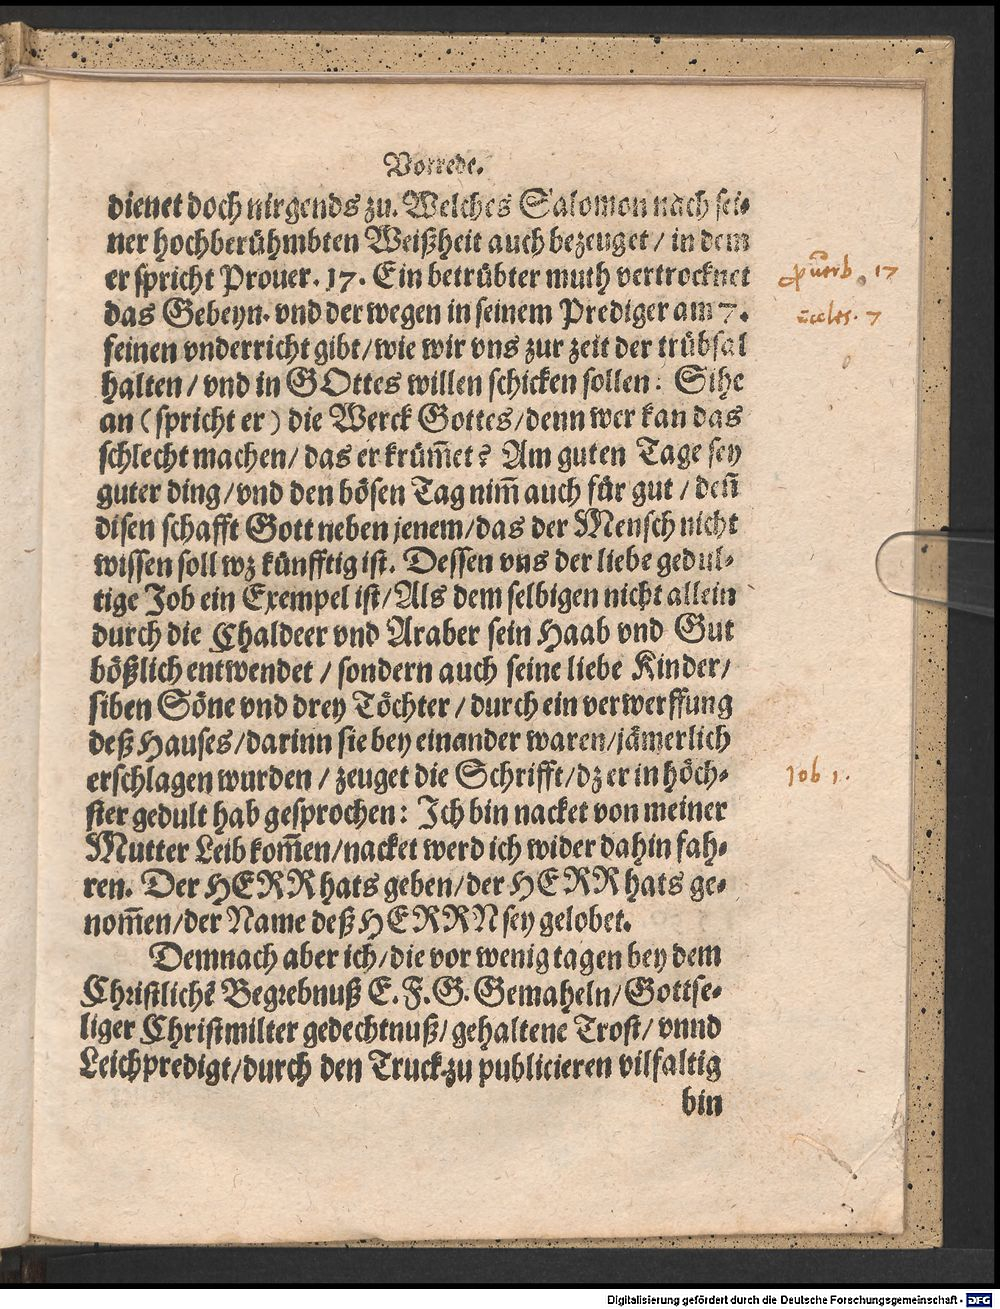 Vorrede.
dienet doch nirgends zu. Welches Salomon nach sei-
ner hochberühmbten Weißheit auch bezeuget / in dem
er spricht Prouer. 17. Ein betrübter muth vertrocknet
das Gebeyn. vnd derwegen in seinem Prediger am 7.
seinen vnderricht gibt / wie wir vns zur zeit der trübsal
halten / vnd in GOttes willen schicken sollen: Sihe
an (spricht er) die Werck Gottes / denn wer kan das
schlecht machen / das er krüm̃et? Am guten Tage sey
guter ding / vnd den bösen Tag nim̃ auch für gut / deñ
disen schafft Gott neben jenem / das der Mensch nicht
wissen soll wz künfftig ist. Dessen vns der liebe gedul-
tige Job ein Exempel ist / Als dem selbigen nicht allein
durch die Chaldeer vnd Araber sein Haab vnd Gut
bößlich entwendet / sondern auch seine liebe Kinder /
siben Söne vnd drey Töchter / durch ein verwerffung
deß Hauses / darinn sie bey einander waren / jämerlich
erschlagen wurden / zeuget die Schrifft / dz er in höch-
ster gedult hab gesprochen: Ich bin nacket von meiner
Mutter Leib kom̃en / nacket werd ich wider dahin fah-
ren. Der HERR hats geben / der HERR hats ge-
nom̃en / der Name deß HERRN sey gelobet.
Demnach aber ich / die vor wenig tagen bey dem
Christlichẽ Begrebnuß E. F. G. Gemaheln / Gottse-
liger Christmilter gedechtnuß / gehaltene Trost / vnnd
Leichpredigt / durch den Truck zu publicieren vilfaltig
bin
17
eccles. 7
Iob 1.
Digitalisierung gefördert durch die Deutsche Forschungsgemeinschaft - DFG